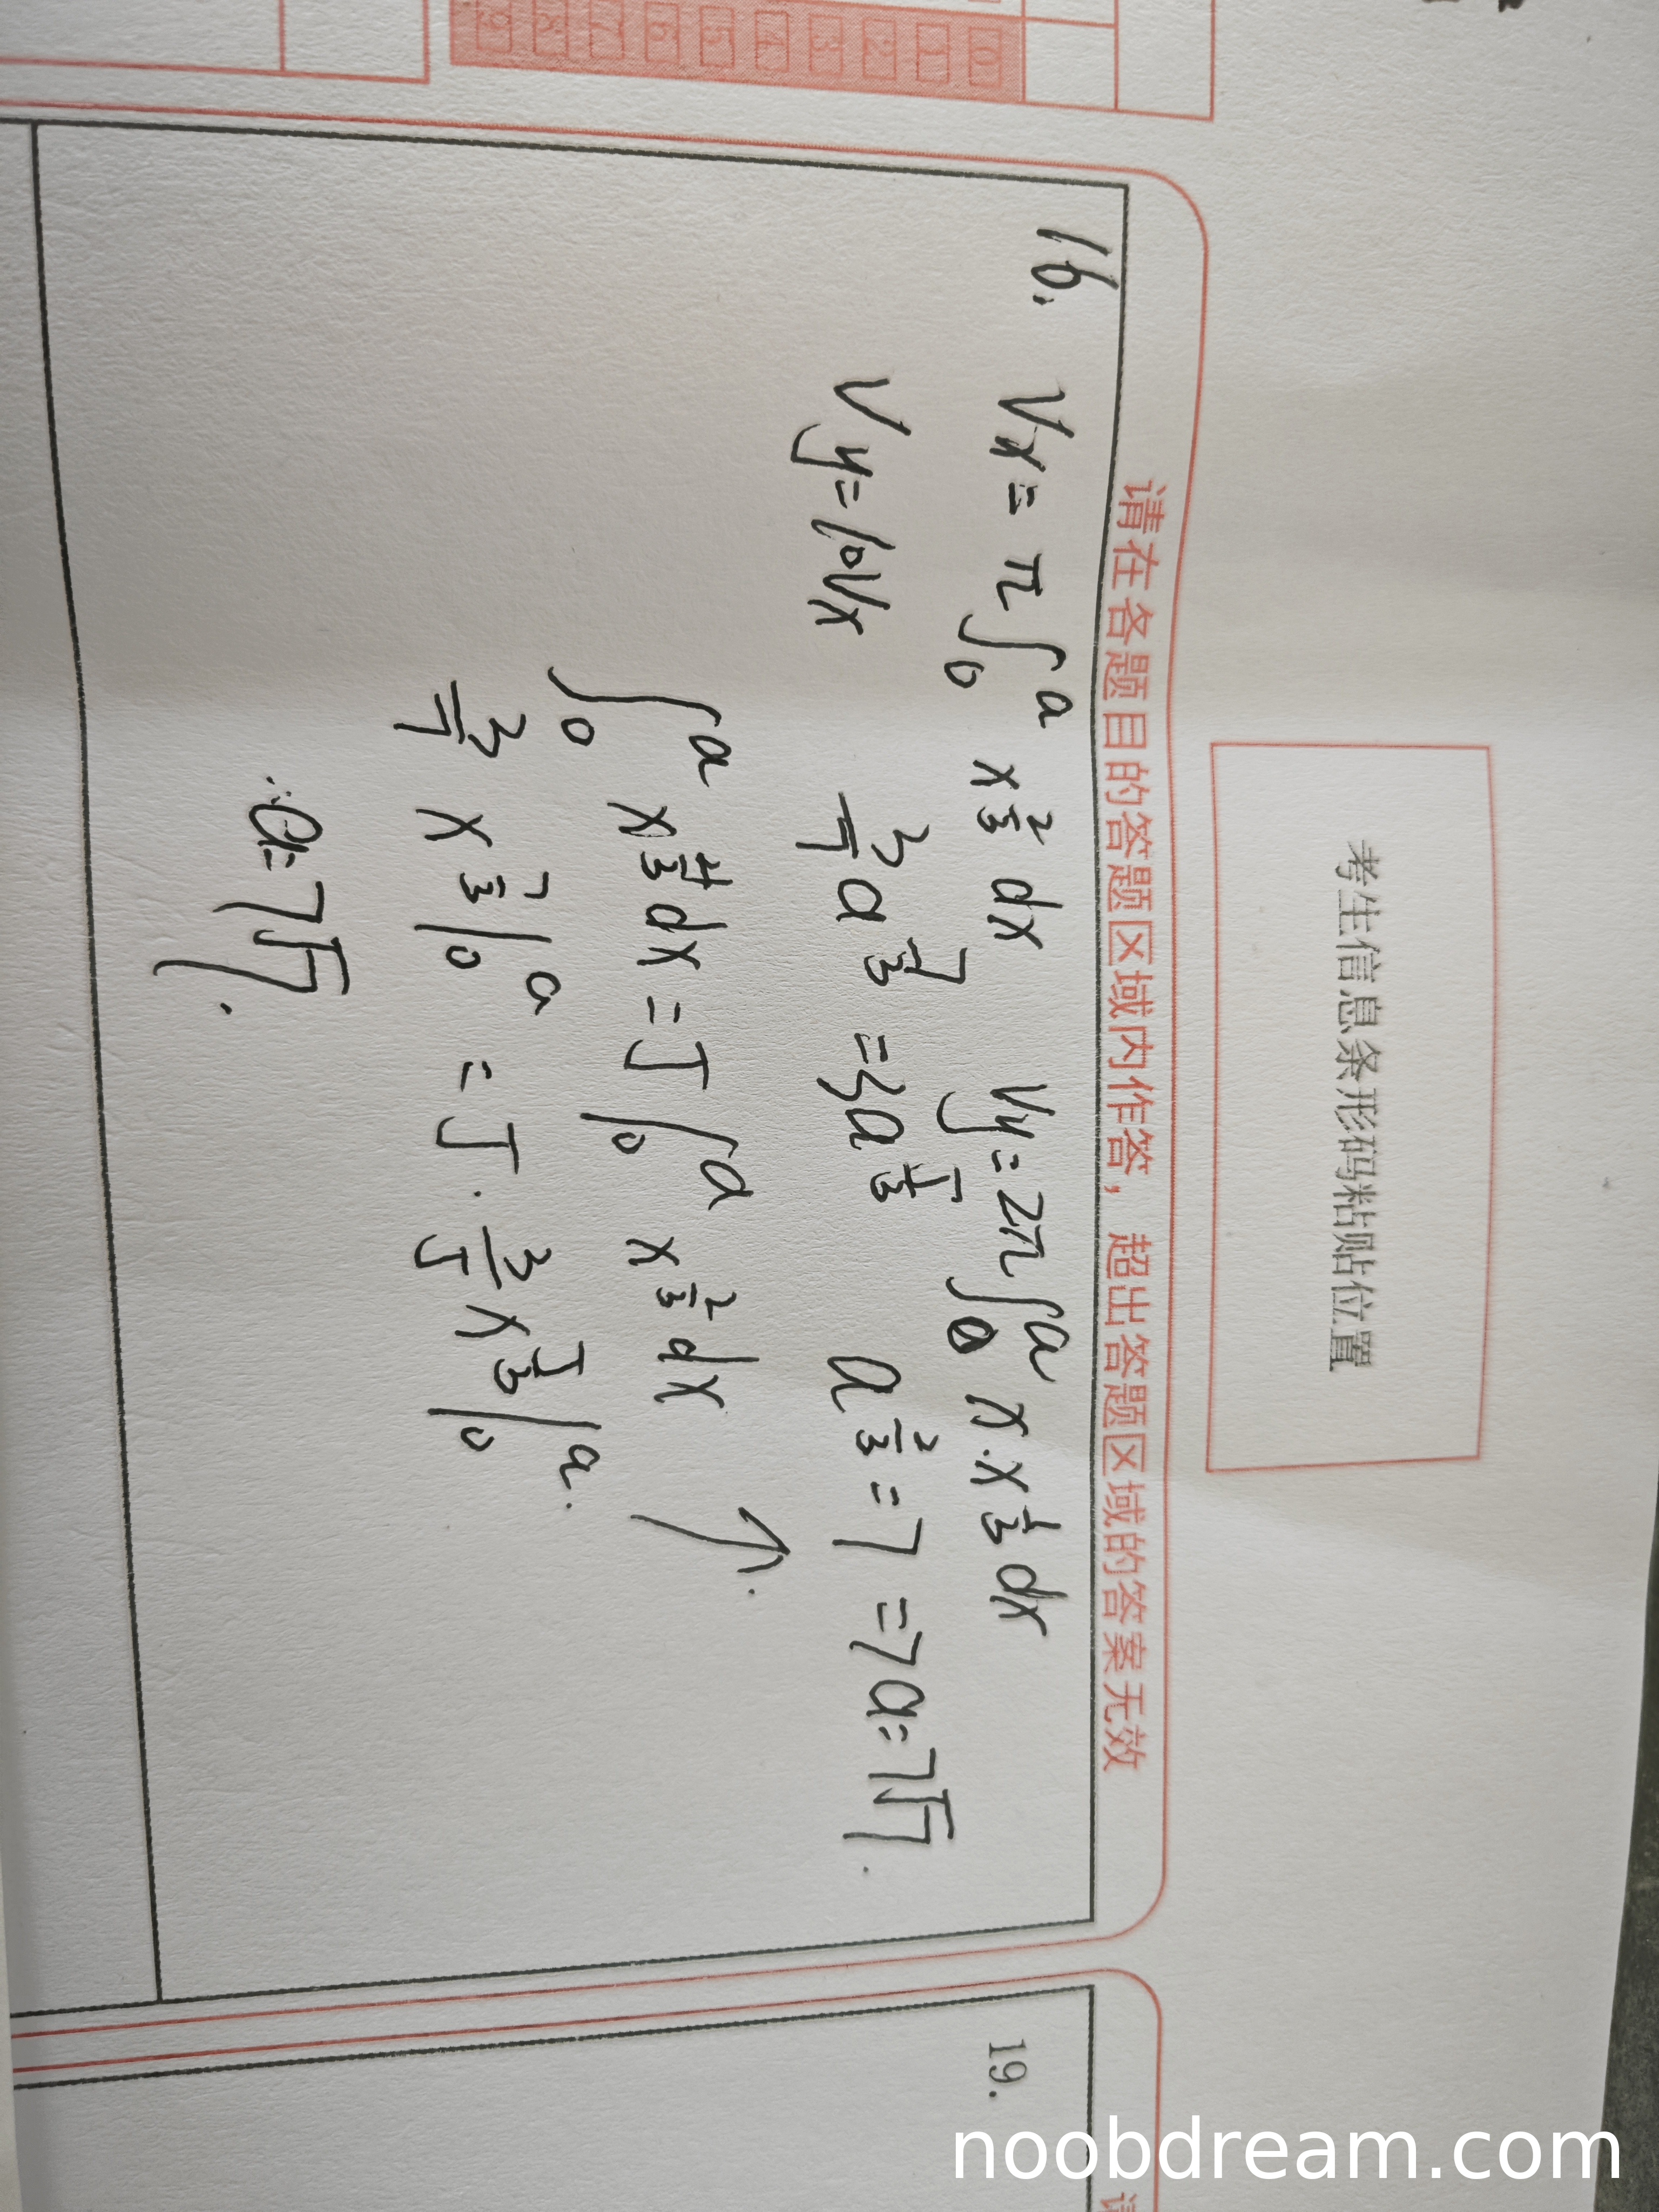 考生信息条形码粘贴位置
请在各题目的答题区域内作答，超出答题区域的答案无效
16. Vx = π∫₀ᵃ x^(2/3) dx  Vy = 2π∫₀ᵃ x·x^(1/3) dx
Vy = 10Vx  3/7 a^(7/3) = 3a^(5/3)  a^(2/3) = 7 => a = 7√7.
∫₀ᵃ x^(4/3) dx = 5∫₀ᵃ x^(2/3) dx ↑.
3/7 x^(7/3)|₀ᵃ = 5·3/5 x^(5/3)|₀ᵃ.
∴ a = 7√7.
19.
[0] [1] [2] [3] [4] [5] [6] [7] [8] [9]
noobdream.com